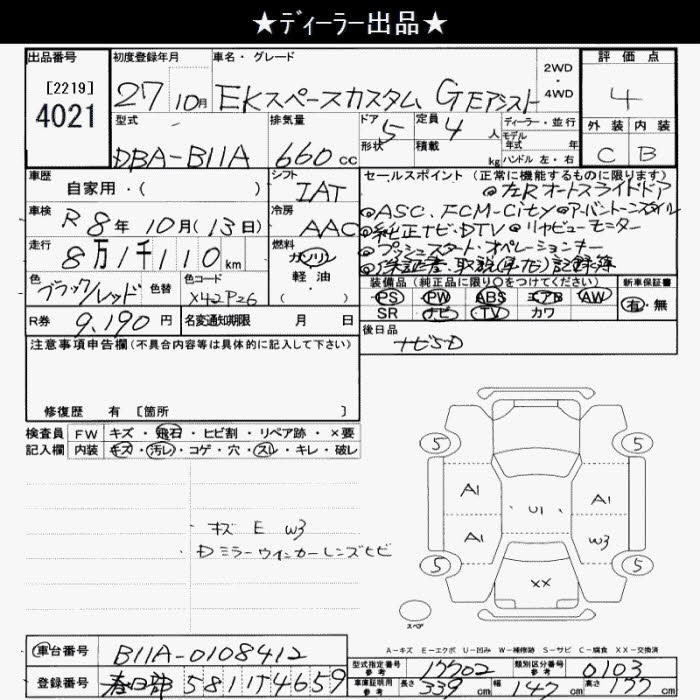 ★ディーラー出品★
出品番号 初度登録年月 車名・グレード 2WD・4WD 評価点
[2219] 4021 27 10月 EKスペースカスタム G Eアシスト 4
型式 排気量 ドア 5 定員 4人 ディーラー・並行 外装 内装
DBA-B11A 660cc 形状 積載 kg モデル年式 年 ハンドル 左・右 C B
車歴 シフト セールスポイント (正常に機能するものに限ります)
自家用・( ) IAT ◎左Rオートスライドドア
車検 R8年10月(13日) 冷房 AAC ◎ASC.FCM-City ◎アーバントーンスタイル
◎純正ナビ・DTV ◎リヤビューモニター
走行 8万1千110km 燃料 ガソリン 軽油 ( ) ◎プッシュスタート・オペレーションキー
◎保証書・取説(車ナビ)記録簿
色 ブラック/レッド 色替 色コード X42P26 装備品 (純正品に限り○をつけてください) 新車保証書
PS PW ABS エアB AW 有・無
R券 9,190円 名変通知期限 月 日 SR ナビ TV カワ
後日品
注意事項申告欄(不具合内容等は具体的に記入して下さい) ナビSD
修復歴 有 [箇所 ]
検査員 FW キズ・飛石・ヒビ割・リペア跡・×要
記入欄 内装 キズ・汚レ・コゲ・穴・スレ・キレ・破レ
5 5
A1 A1
U1
A1 W3
5 5
XX
キズ E W3
Dミラーウィンカーレンズヒビ
スペア
A-キズ E-エクボ U-凹み W-補修跡 S-サビ C-腐食 XX-交換済
車台番号 B11A-0108412 型式指定番号 参考 17702 類別区分番号 参考 0103
登録番号 春日部 581 ｿ 4659 車庫証明用 参考 長さ 339cm 幅 147cm 高さ 177cm